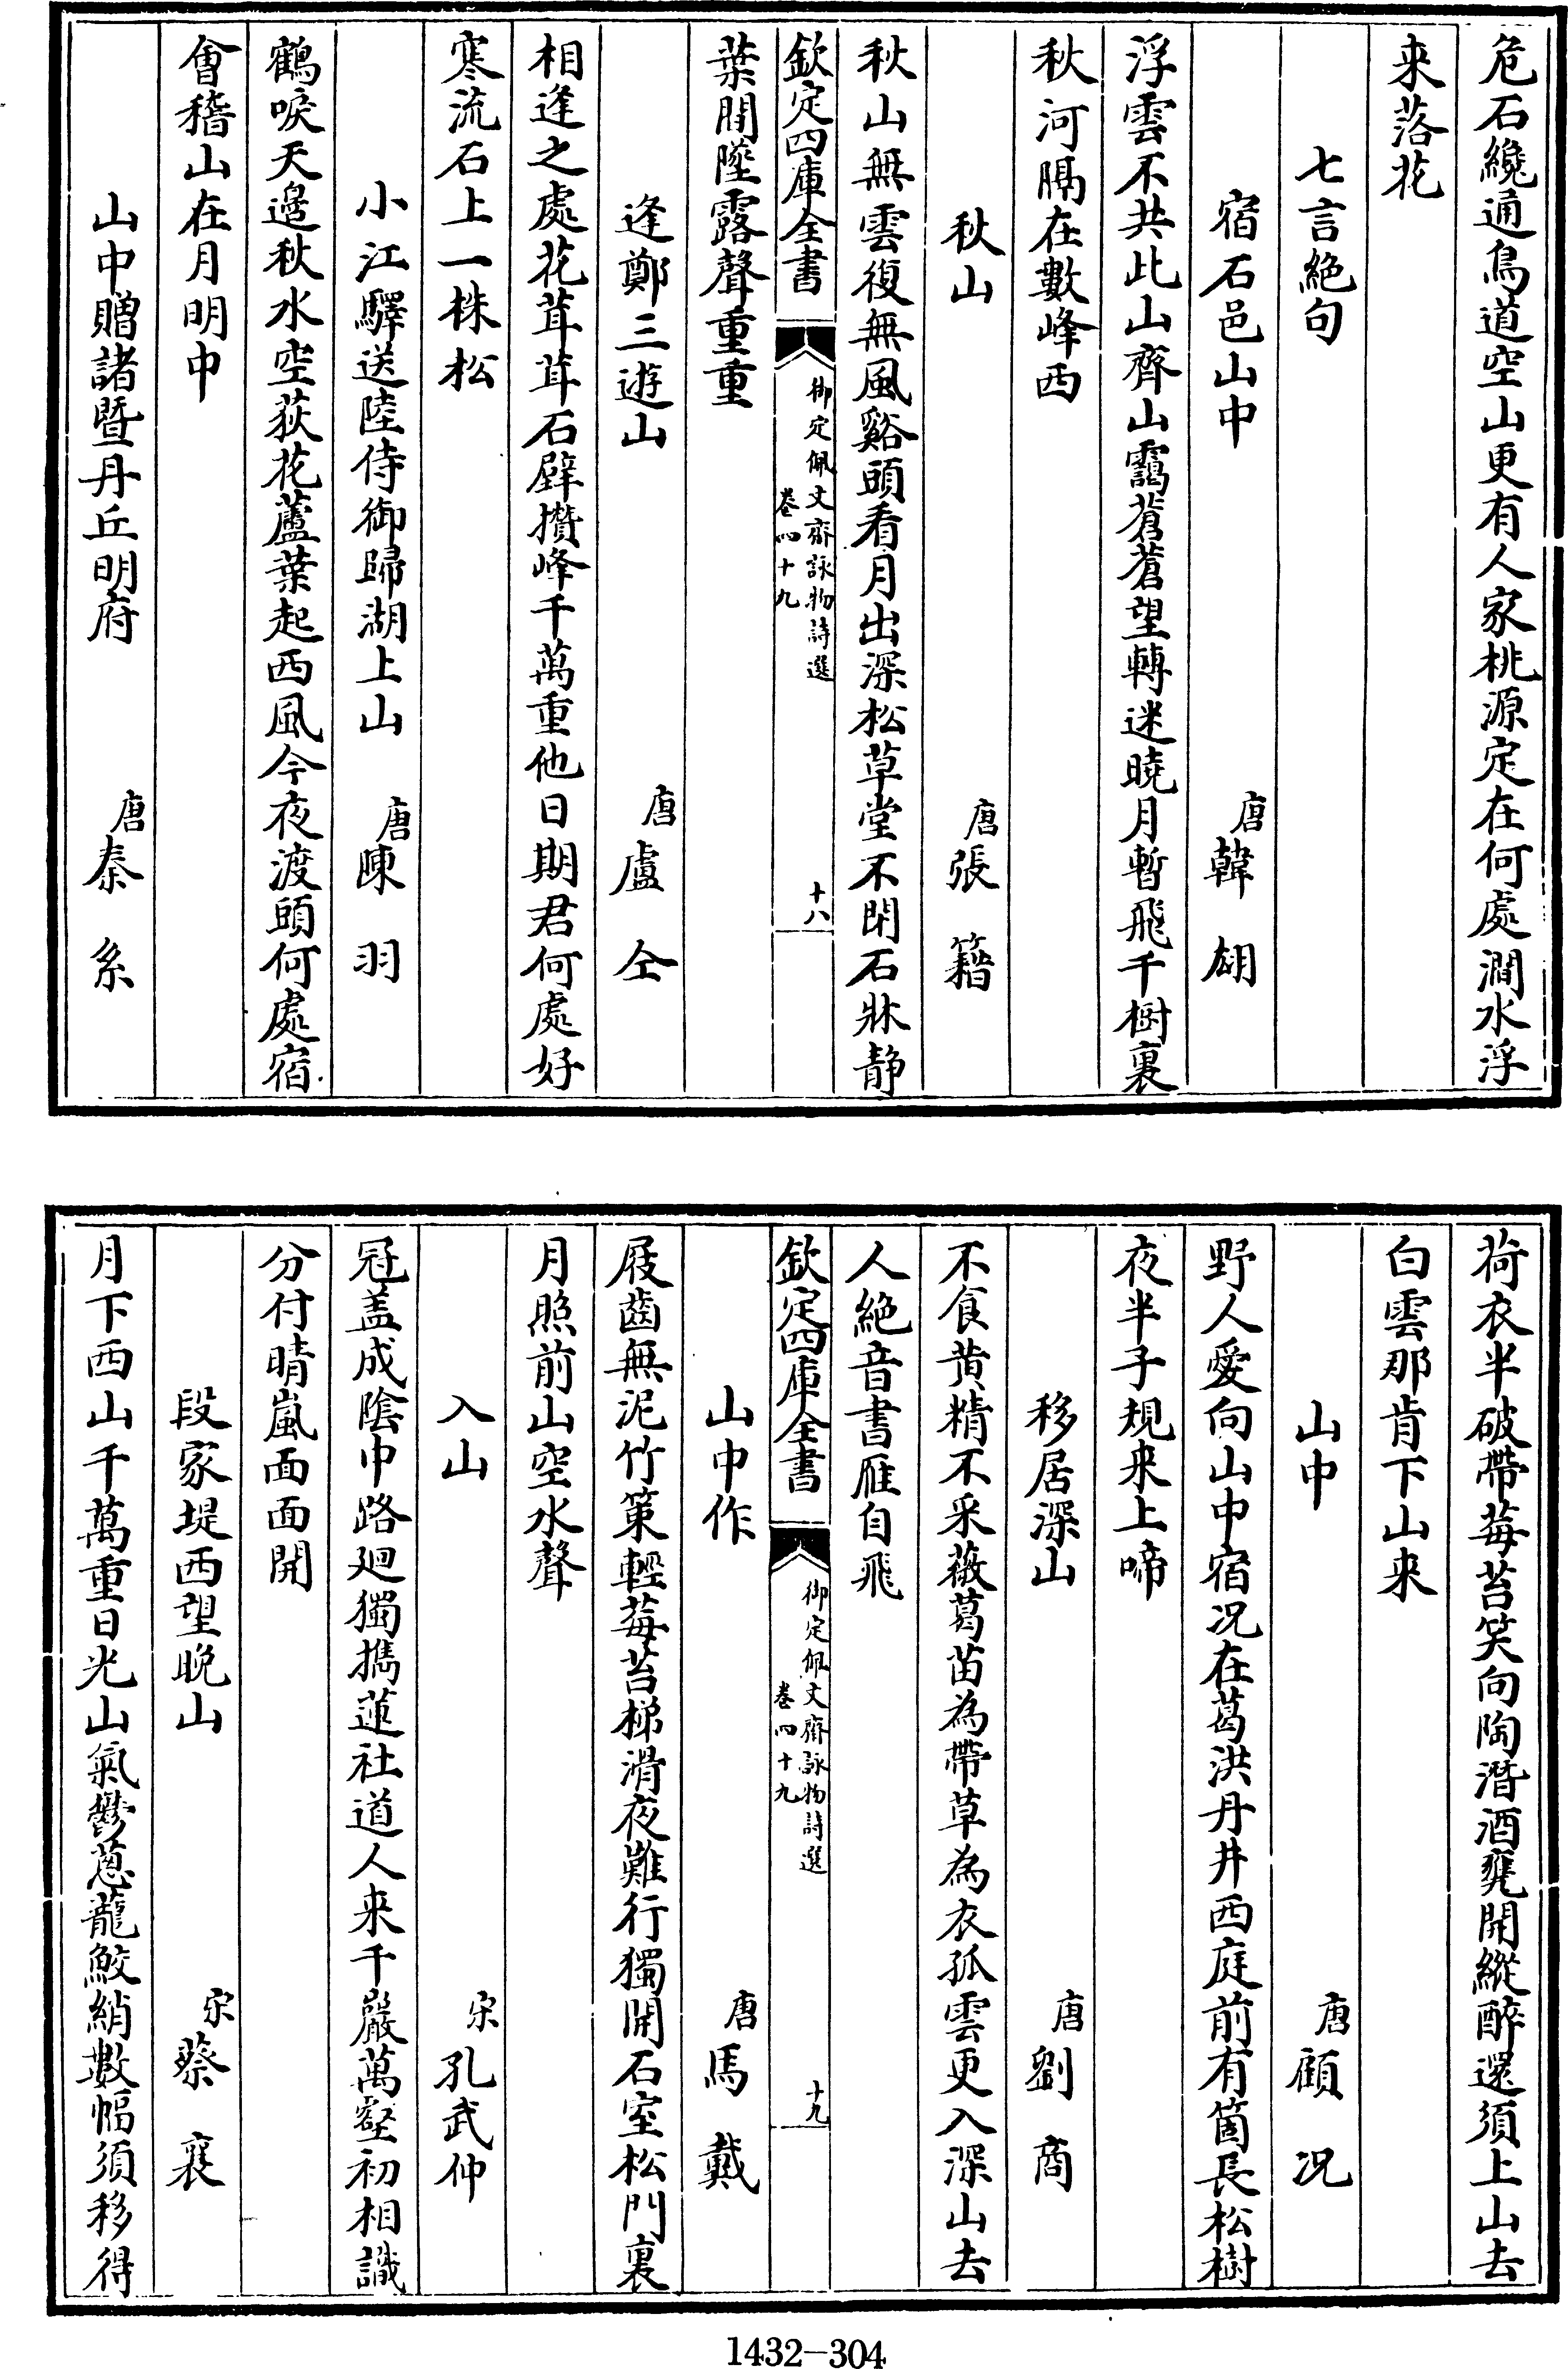 危石纔通鳥道空山更有人家桃源定在何處澗水浮
来落花
七言絶句
宿石邑山中 唐韓翃
浮雲不共此山齊山靄蒼蒼望轉迷曉月暫飛千樹裏
秋河隔在數峰西
秋山 唐張籍
秋山無雲復無風谿頭看月出深松草堂不閉石牀静
欽定四庫全書 御定佩文齋詠物詩選 卷四十九 十八
葉間墜露聲重重
逢鄭三遊山 唐盧仝
相逢之處花茸茸石壁攢峰千萬重他日期君何處好
寒流石上一株松
小江驛送陸侍御歸湖上山 唐陳羽
鶴唳天邊秋水空荻花蘆葉起西風今夜渡頭何處宿
會稽山在月明中
山中贈諸暨丹丘明府 唐秦系
荷衣半破帶莓苔笑向陶潛酒甕開縱醉還須上山去
白雲那肯下山来
山中 唐顧况
野人愛向山中宿况在葛洪丹井西庭前有箇長松樹
夜半子規来上啼
移居深山 唐劉商
不食黄精不采薇葛苗為帶草為衣孤雲更入深山去
人絶音書雁自飛
欽定四庫全書 御定佩文齋詠物詩選 卷四十九 十九
山中作 唐馬戴
屐齒無泥竹策輕莓苔梯滑夜難行獨開石室松門裏
月照前山空水聲
入山 宋孔武仲
冠盖成陰中路廻獨攜蓮社道人来千巖萬壑初相識
分付晴嵐面面開
段家堤西望晚山 宋蔡襄
月下西山千萬重日光山氣鬱葱蘢鮫綃數幅須移得
1432-304